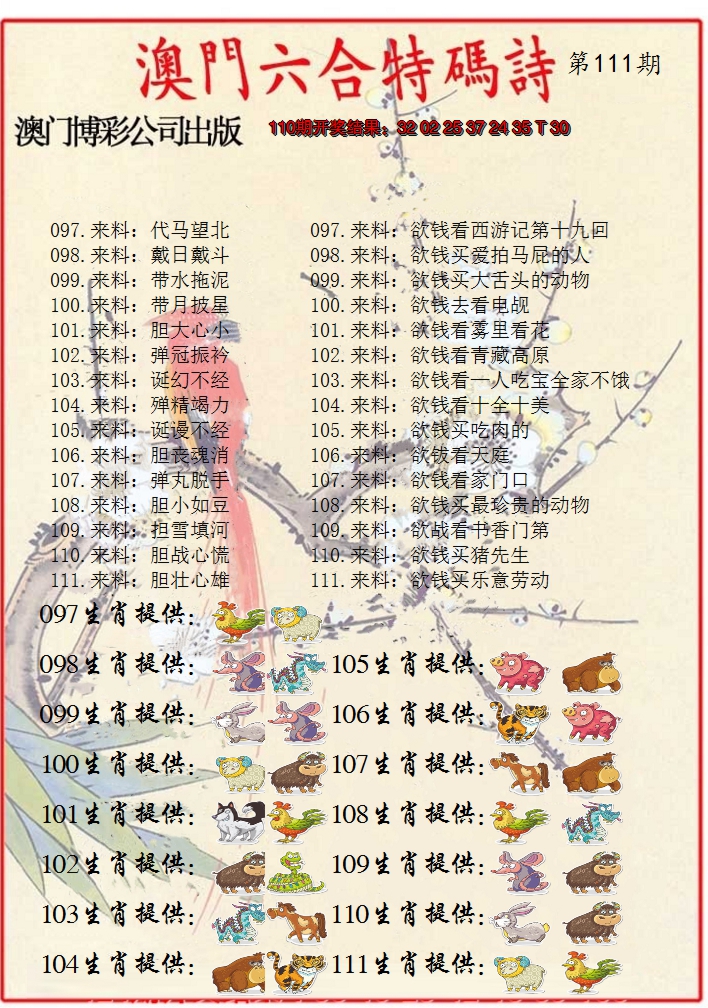 澳門六合特碼詩 第111期
澳门博彩公司出版 110期开奖结果：32 02 25 37 24 35 T 30
097.来料：代马望北 097.来料：欲钱看西游记第十九回
098.来料：戴日戴斗 098.来料：欲钱买爱拍马屁的人
099.来料：带水拖泥 099.来料：欲钱买大舌头的动物
100.来料：带月披星 100.来料：欲钱去看电觇
101.来料：胆大心小 101.来料：欲钱看雾里看花
102.来料：弹冠振衿 102.来料：欲钱看青藏高原
103.来料：诞幻不经 103.来料：欲钱看一人吃宝全家不饿
104.来料：殚精竭力 104.来料：欲钱看十全十美
105.来料：诞谩不经 105.来料：欲钱买吃肉的
106.来料：胆丧魂消 106.来料：欲钱看天庭
107.来料：弹丸脱手 107.来料：欲钱看家门口
108.来料：胆小如豆 108.来料：欲钱买最珍贵的动物
109.来料：担雪填河 109.来料：欲战看书香门第
110.来料：胆战心慌 110.来料：欲钱买猪先生
111.来料：胆壮心雄 111.来料：欲钱买乐意劳动
097生肖提供：
098生肖提供： 105生肖提供：
099生肖提供： 106生肖提供：
100生肖提供： 107生肖提供：
101生肖提供： 108生肖提供：
102生肖提供： 109生肖提供：
103生肖提供： 110生肖提供：
104生肖提供： 111生肖提供：